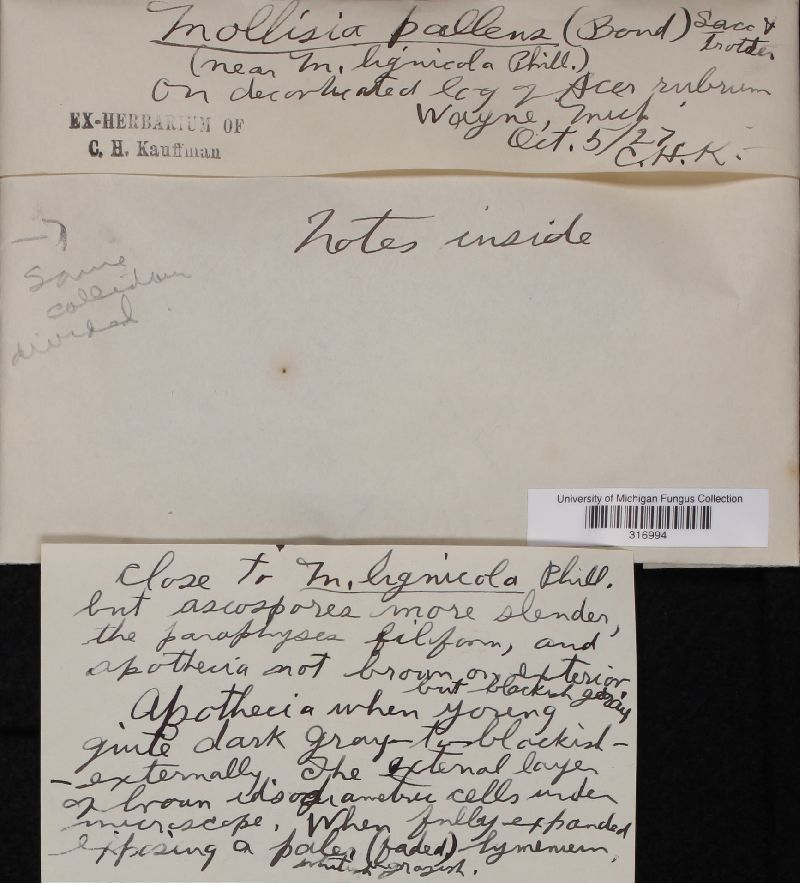 Mollisia pallens (Boud) Sacc &
Trotter
(near M. lignicola Phill.)
On decorticated log of Acer rubrum
Wayne, Mich.
Oct. 5/27
C.H.K.
EX-HERBARIUM OF
C. H. Kauffman
Notes inside
Same
divided
University of Michigan Fungus Collection
316994
Close to M. lignicola Phill.
but ascospores more slender,
the paraphyses filiform, and
apothecia not brown on exterior
but blackish gray
Apothecia when young
quite dark gray-to-blackish-
externally. The external layer
of brown idsodiametric cells under
microscope. When fully expanded
exposing a paler (faded) hymenium,
whitish grayish.